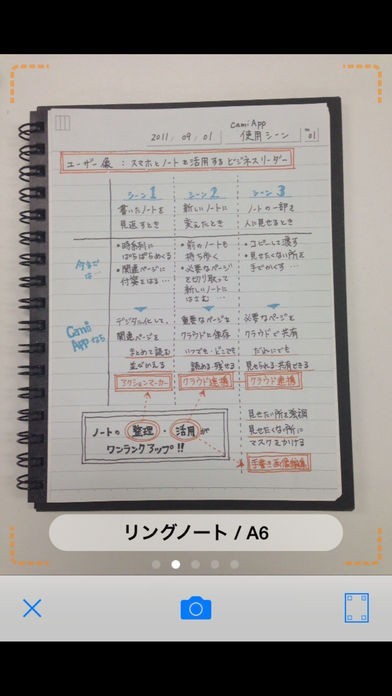 Cami App
2011, 09, 01 使用シーン No 01
ユーザー像 : スマホとノートを活用するビジネスリーダー
シーン1 シーン2 シーン3
書いたノートを 新しいノートに ノートの一部を
見返すとき 変えたとき 人に見せるとき
今までは… • 時系列に • 前のノートも • コピーして渡す
ぱらぱらめくる 持ち歩く • 見せたくない所を
• 関連ページに • 必要なページ 手でかくす…
付箋をはる… を切り取って
新しいノートに
はさむ…
Cami Appなら デジタル化して、 重要なページを 必要なページを
関連ページを クラウドに保存 クラウドで共有
まとめて読む いつでも・どこでも だれにでも
並びかえる 読める・残せる 見せられる・共有させる
アクションマーカー クラウド連携 クラウド連携
ノートの 整理・活用が
ワンランクアップ!!
見せたい所を強調
見せたくない所に
マスクをかける
手書き画像編集
リングノート / A6